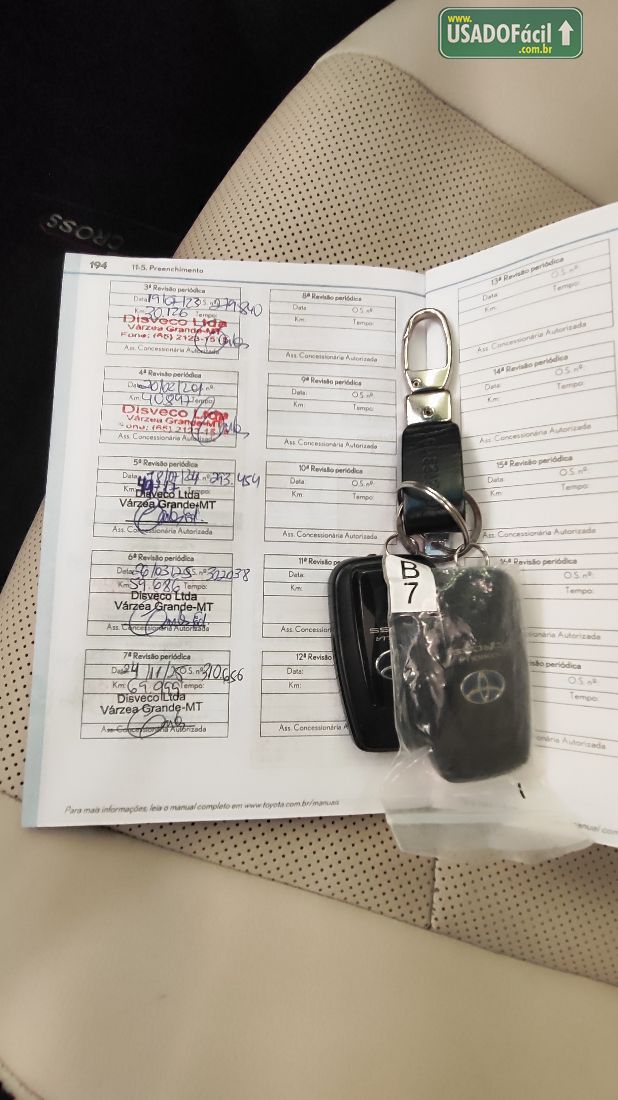 www.
USADOFácil
.com.br
CROSS
194 11-5. Preenchimento
3ª Revisão periódica
Data: 19/07/23 O.S. nº: 279.840
Km: 30.126 Tempo:
Disveco Ltda
Várzea Grande-MT
Fone: (65) 2123-15
Ass. Concessionária Autorizada
4ª Revisão periódica
Data: O.S. nº:
Km: 40.897 Tempo:
Disveco Ltda
Várzea Grande-MT
Ass. Concessionária Autorizada
5ª Revisão periódica
Data: O.S. nº: 293.454
Km:
Disveco Ltda
Várzea Grande-MT
Ass. Concessionária Autorizada
6ª Revisão periódica
Data: 26/03/25 O.S. nº: 302038
Km: 59.686 Tempo:
Disveco Ltda
Várzea Grande-MT
Ass. Concessionária Autorizada
7ª Revisão periódica
Data: 24/11/25 O.S. nº: 310.656
Km: 69.099 Tempo:
Disveco Ltda
Várzea Grande-MT
Ass. Concessionária Autorizada
8ª Revisão periódica
Data: O.S. nº:
Km: Tempo:
Ass. Concessionária Autorizada
9ª Revisão periódica
Data: O.S. nº:
Km: Tempo:
Ass. Concessionária Autorizada
10ª Revisão periódica
Data: O.S. nº:
Km: Tempo:
Ass. Concessionária Autorizada
11ª Revisão
Data:
Km:
Ass. Concessionária
12ª Revisão
Data:
Km:
Ass. Concessionária
13ª Revisão periódica
Data: O.S. nº:
Km: Tempo:
Ass. Concessionária Autorizada
14ª Revisão periódica
Data: O.S. nº:
Km: Tempo:
Ass. Concessionária Autorizada
15ª Revisão periódica
Data: O.S. nº:
Km: Tempo:
Ass. Concessionária Autorizada
16ª Revisão periódica
O.S. nº:
Tempo:
Autorizada
O.S. nº:
Tempo:
Concessionária Autorizada
B
7
Para mais informações, leia o manual completo em www.toyota.com.br/manuais